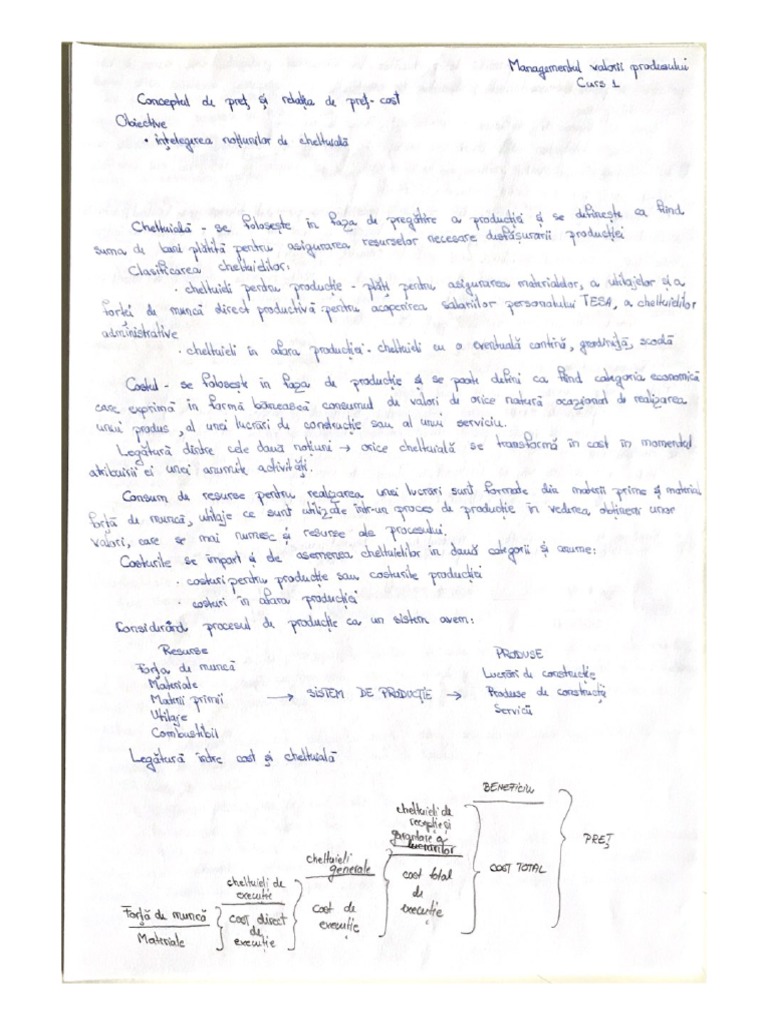 Managementul valorii produsului
Curs 1
Conceptul de preț și relația de preț-cost
Obiective
• înțelegerea noțiunilor de cheltuială
Cheltuială - se folosește în faza de pregătire a producției și se definește ca fiind
suma de bani plătită pentru asigurarea resurselor necesare desfășurării producției
Clasificarea cheltuielilor:
• cheltuieli pentru producție - plăți pentru asigurarea materialelor, a utilajelor și a
forță de muncă direct productivă pentru acoperirea salariilor personalului TESA, a cheltuielilor
administrative
• cheltuieli în afara producției - cheltuieli cu o eventuală cantină, grădiniță, școală
Costul - se folosește în faza de producție și se poate defini ca fiind categoria economică
care exprimă în formă bănească consumul de valori de orice natură ocazionat de realizarea
unui produs, al unei lucrări de construcție sau al unui serviciu.
Legătură dintre cele două noțiuni → orice cheltuială se transformă în cost în momentul
atribuirii ei unei anumite activități.
Consum de resurse pentru realizarea unei lucrări sunt formate din materii prime și material
forță de muncă, utilaje ce sunt utilizate într-un proces de producție în vederea obținerii unor
valori, care se mai numesc și resurse ale procesului.
Costurile se împart și ele asemenea cheltuielilor în două categorii și anume:
• costuri pentru producție sau costurile producției
• costuri în afara producției
Considerând procesul de producție ca un sistem avem:
Resurse
PRODUSE
Forța de muncă
Lucrări de construcție
Materiale
Materii primei
→ SISTEM DE PRODUCȚIE →
Produse de construcții
Utilaje
Servicii
Combustibil
Legătură între cost și cheltuială
BENEFICIU
cheltuieli de
recepție și
garantare a
lucrărilor
PREȚ
cheltuieli
generale
COST TOTAL
cheltuieli de
execuție
cost total
de
execuție
Forță de muncă
cost direct
de
execuție
cost de
execuție
Materiale